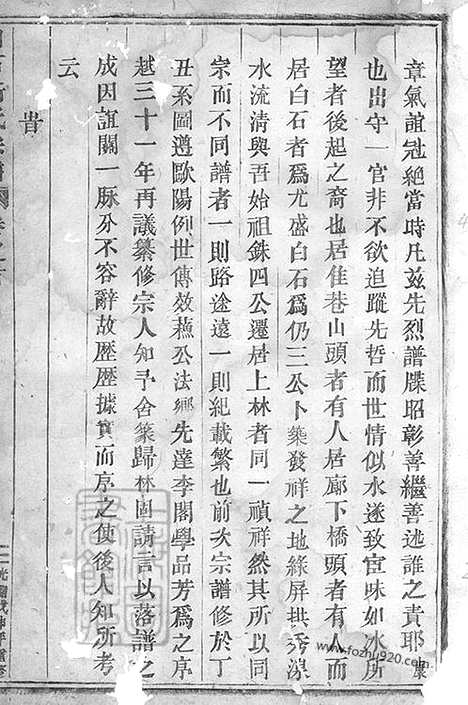 章氣誼冠絕當時凡茲先烈譜牒昭彰善繼善述誰之責耶
也出守一官非不欲追蹤先哲而世情似水遂致宦味如水所
望者後起之裔也居佳巷山頭者有人居廊下橋頭者有人而
居白石者爲尤盛白石爲仍三公卜築發祥之地綠屏拱秀深
水流清與吾始祖銖四公遷居上林者同一禎祥然其所以同
宗而不同譜者一則路途遠一則紀載繁也前次宗譜修於丁
丑系圖遵歐陽例世傳效蘇公法鄉先達李閣學品芳爲之序
越三十一年再議纂修宗人知予舍篆歸林固請言以落譜之
成因誼關一脈分不容辭故歷歷據實而序之使後人知所考
云
昔
光緒戊申年重修
www.fozhu920.com